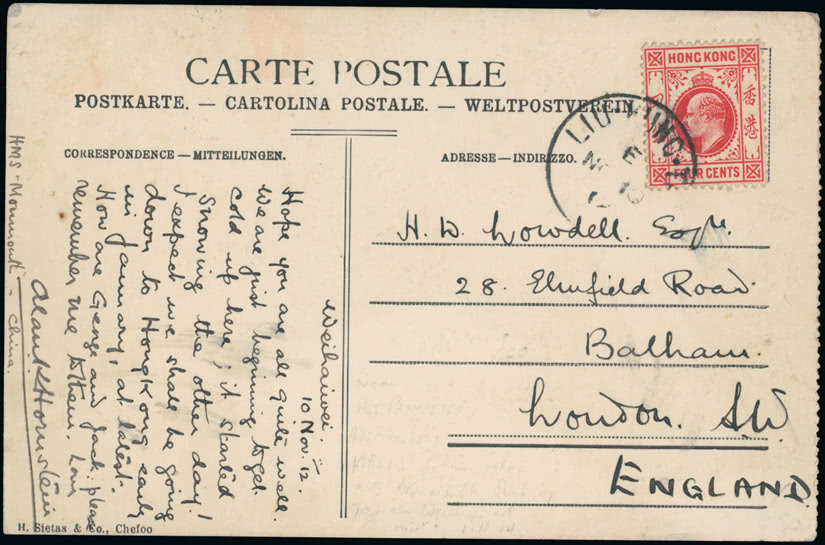 CARTE POSTALE
POSTKARTE. — CARTOLINA POSTALE. — WELTPOSTVEREIN
CORRESPONDENCE — MITTEILUNGEN.
ADRESSE — INDIRIZZO.
HONG KONG
香港
FOUR CENTS
LIU KUNG
Weihaiwei.
10 Nov. 12.
Hope you are all quite well.
We are just beginning to get
cold up here; it started
snowing the other day!
I expect we shall be going
down to Hong Kong early
in January, at latest.
How are George and Jack. please
remember me to them. Love
HMS. Monmouth - China.
H. D. Lowdell. Esqre.
28. Elmfield Road.
Balham.
London. SW.
ENGLAND
H. Sietas & Co., Chefoo